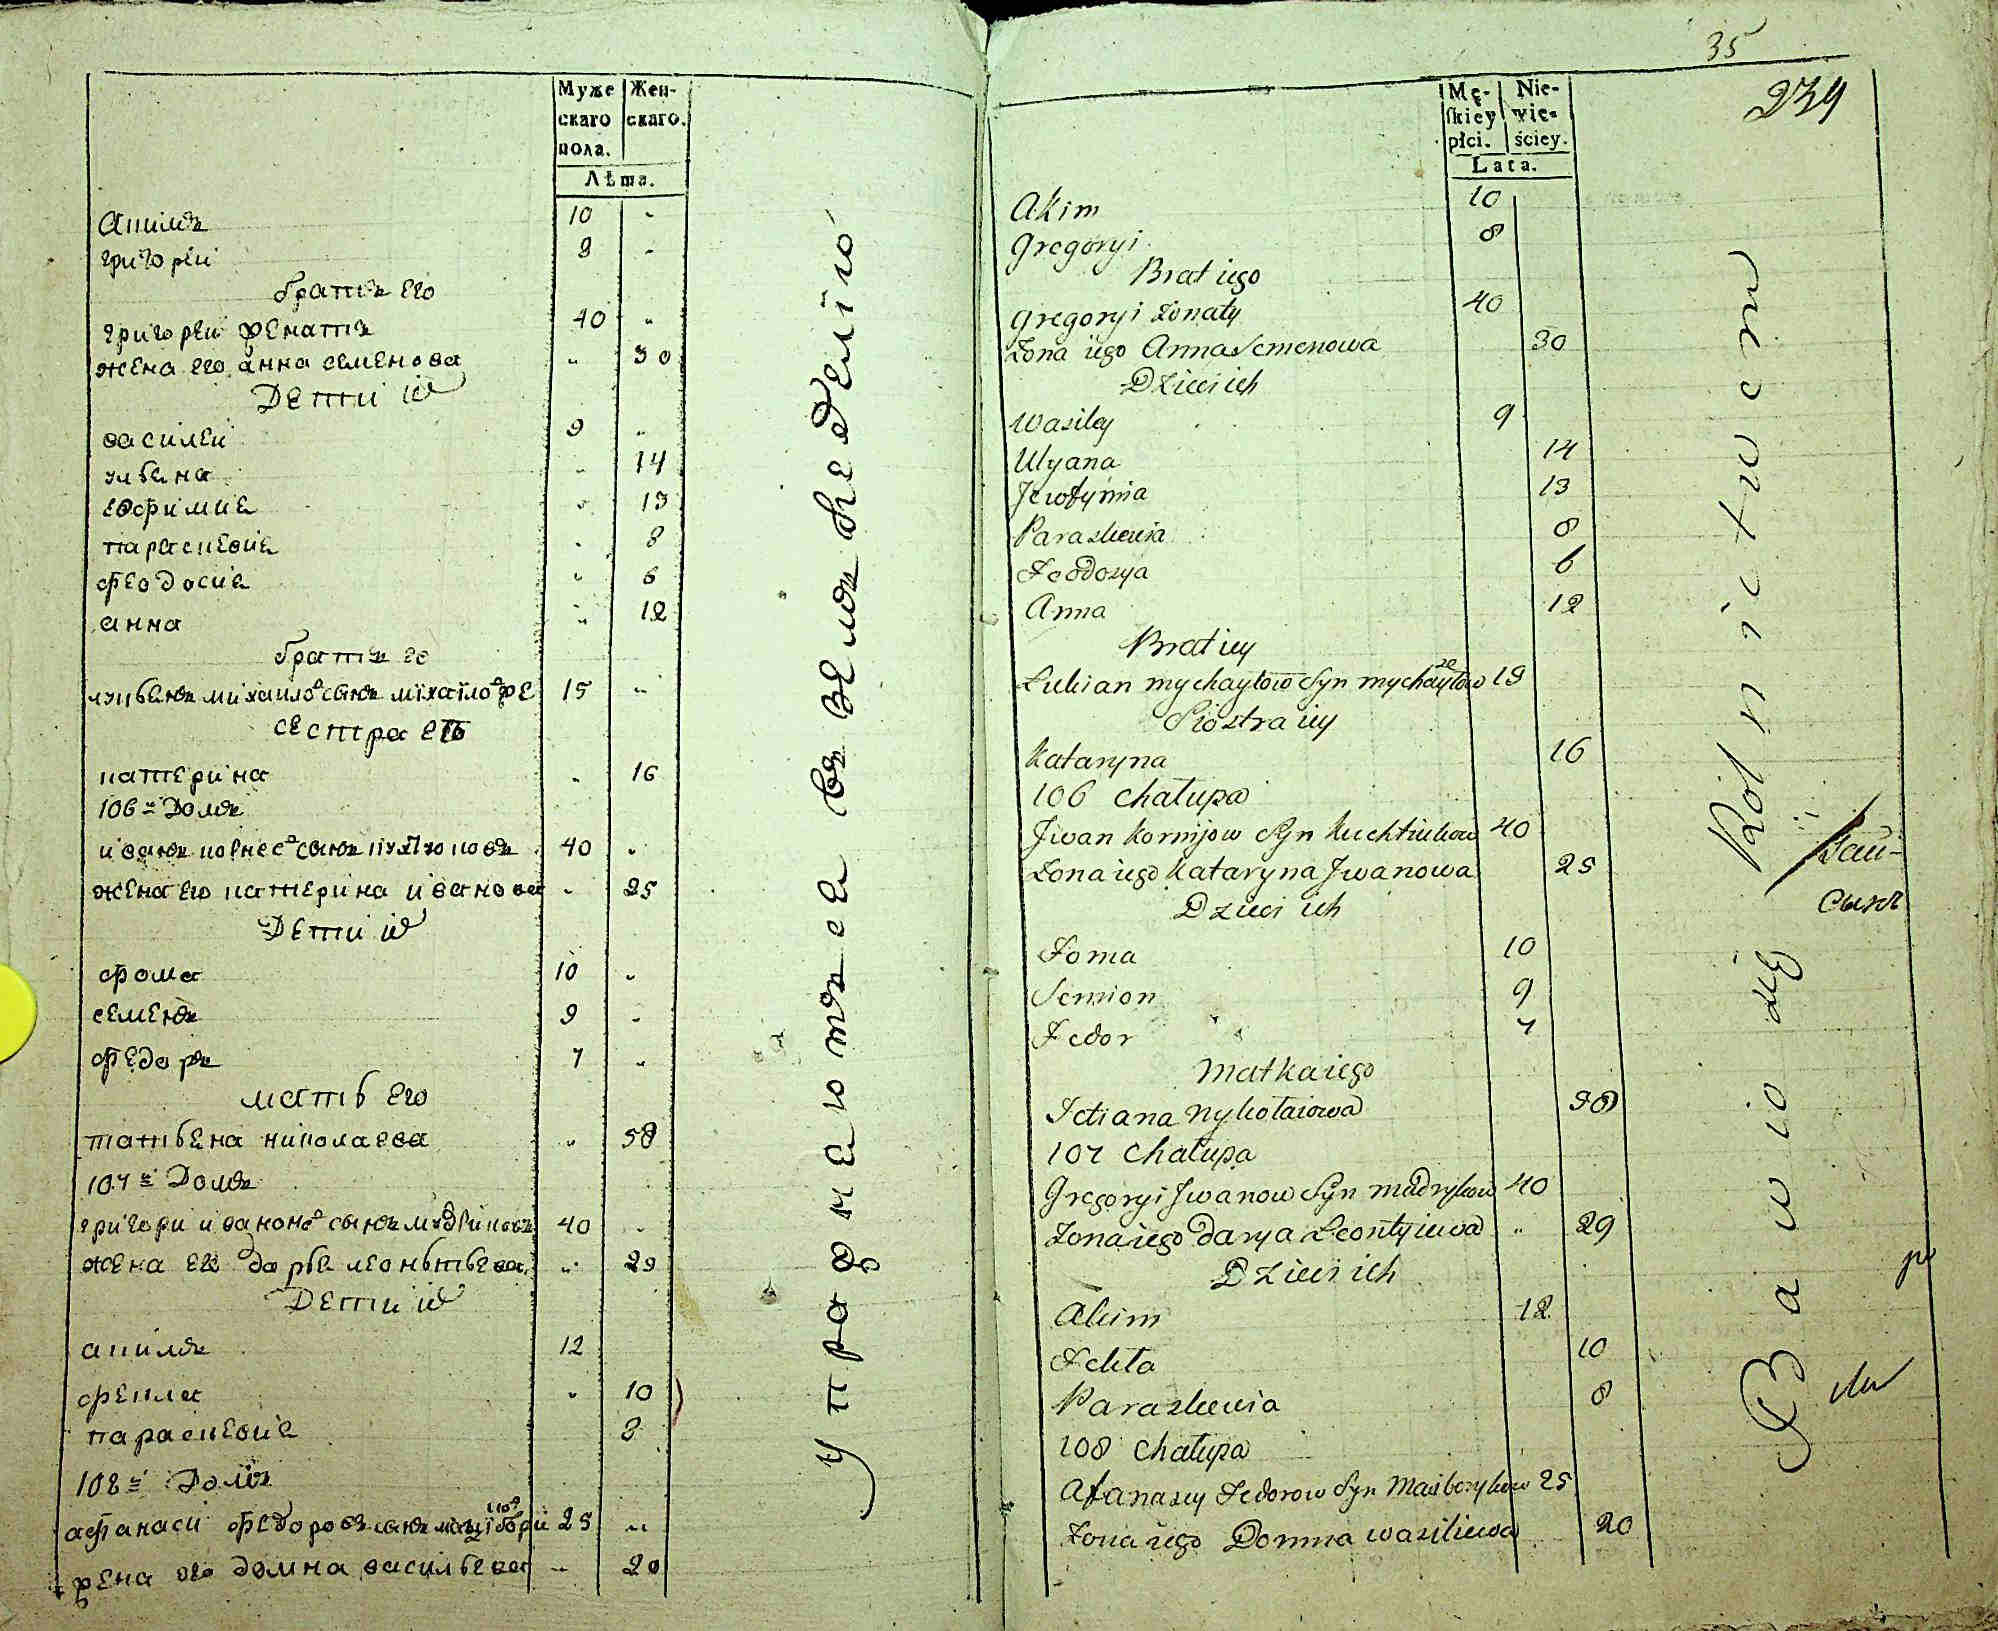 Муже
скаго
пола.
Жен-
скаго.
Лѣта.
Акимъ 10 -
григорѣи 8 -
братъ его
григорѣи женатъ 40 "
жена его анна семенова " 30
Дети іхъ
василеи 9 "
ульяна " 14
евфимия " 13
параскевия " 8
феодосия " 6
анна " 12
братъ ее
лукьянъ михаиловъ сынъ михаіло 15 "
сестра его
катерина " 16
106й Домъ
иванъ корнеевъ сынъ 40 "
жена его катерина иванова " 25
Дети іхъ
фома 10 "
семенъ 9 -
федоръ 7 "
мать его
татьяна николаева " 58
107й Домъ
григори иванова сынъ мадриковъ 40 "
жена его дарья леоньтьева " 29
Дети іхъ
акимъ 12
фекла " 10
параскевия 8
108й Домъ
афанаси федоровъ сынъ 25 "
жена его домна васильева " 20
упражняютъся въ земледѣліи
35
239
Mę-
skiey
płci.
Nie-
wie-
ściey.
Lata.
Akim 10
Gregoryi 8
Brat iego
Gregoryi żonaty 40
Żona iego Anna Semenowa 30
Dzieci ich
Wasiley 9
Ulyana 14
Jewfymia 13
Paraskewia 8
Feodosya 6
Anna 12
Brat iey
Lukian Mychayłow Syn Mychayłow 19
Siostra iey
Kataryna 16
106 Chałupa
Jwan Kornijow Syn Kuchtiukow 40
Żona iego Kataryna Jwanowa 25
Dzieci ich
Foma 10
Semion 9
Fedor 7
Matka iego
Tetiana Nykołaiowa 58
107 Chałupa
Gregoryi Jwanow Syn Madrykow 40
Żona iego Darya Leontyiewa " 29
Dzieci ich
Akim 12
Fekła 10
Paraskewia 8
108 Chałupa
Afanasey Fedorow Syn Maiborykow 25
Żona iego Domna Wasiliewa 20
Bawią się Rolnictwem
сынъ